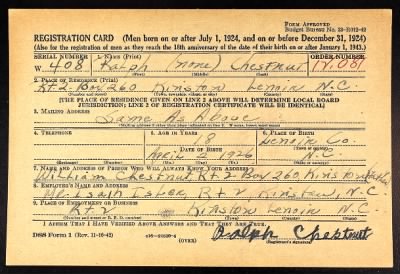 FORM APPROVED
Budget Bureau No. 33-R012-42
REGISTRATION CARD—(Men born on or after July 1, 1924, and on or before December 31, 1924)
(Also for the registration of men as they reach the 18th anniversary of the date of their birth on or after January 1, 1943.)
SERIAL NUMBER 1. NAME (Print) ORDER NUMBER
W 408 Ralph (none) Chestnut
(First) (Middle) (Last)
2. PLACE OF RESIDENCE (Print)
Rt. 2 - Box 260 Kinston Lenoir N.C.
(Number and street) (Town, township, village, or city) (County) (State)
[THE PLACE OF RESIDENCE GIVEN ON LINE 2 ABOVE WILL DETERMINE LOCAL BOARD
JURISDICTION; LINE 2 OF REGISTRATION CERTIFICATE WILL BE IDENTICAL]
3. MAILING ADDRESS
Same As Above
4. TELEPHONE 5. AGE IN YEARS 6. PLACE OF BIRTH
18 Lenoir Co.
DATE OF BIRTH
April 2 1926 N.C.
7. NAME AND ADDRESS OF PERSON WHO WILL ALWAYS KNOW YOUR ADDRESS
William Chestnut Rt. 2 Box 260, Kinston
8. EMPLOYER'S NAME AND ADDRESS
Rt 2, Kinston, N.C
9. PLACE OF EMPLOYMENT OR BUSINESS
Rt 2 Kinston Lenoir N.C.
(Number and street or R. F. D. number) (Town) (County) (State)
I AFFIRM THAT I HAVE VERIFIED ABOVE ANSWERS AND THAT THEY ARE TRUE.
DSS Form 1 (Rev. 11-16-42) (OVER)
Ralph Chestnut
(Registrant's signature)